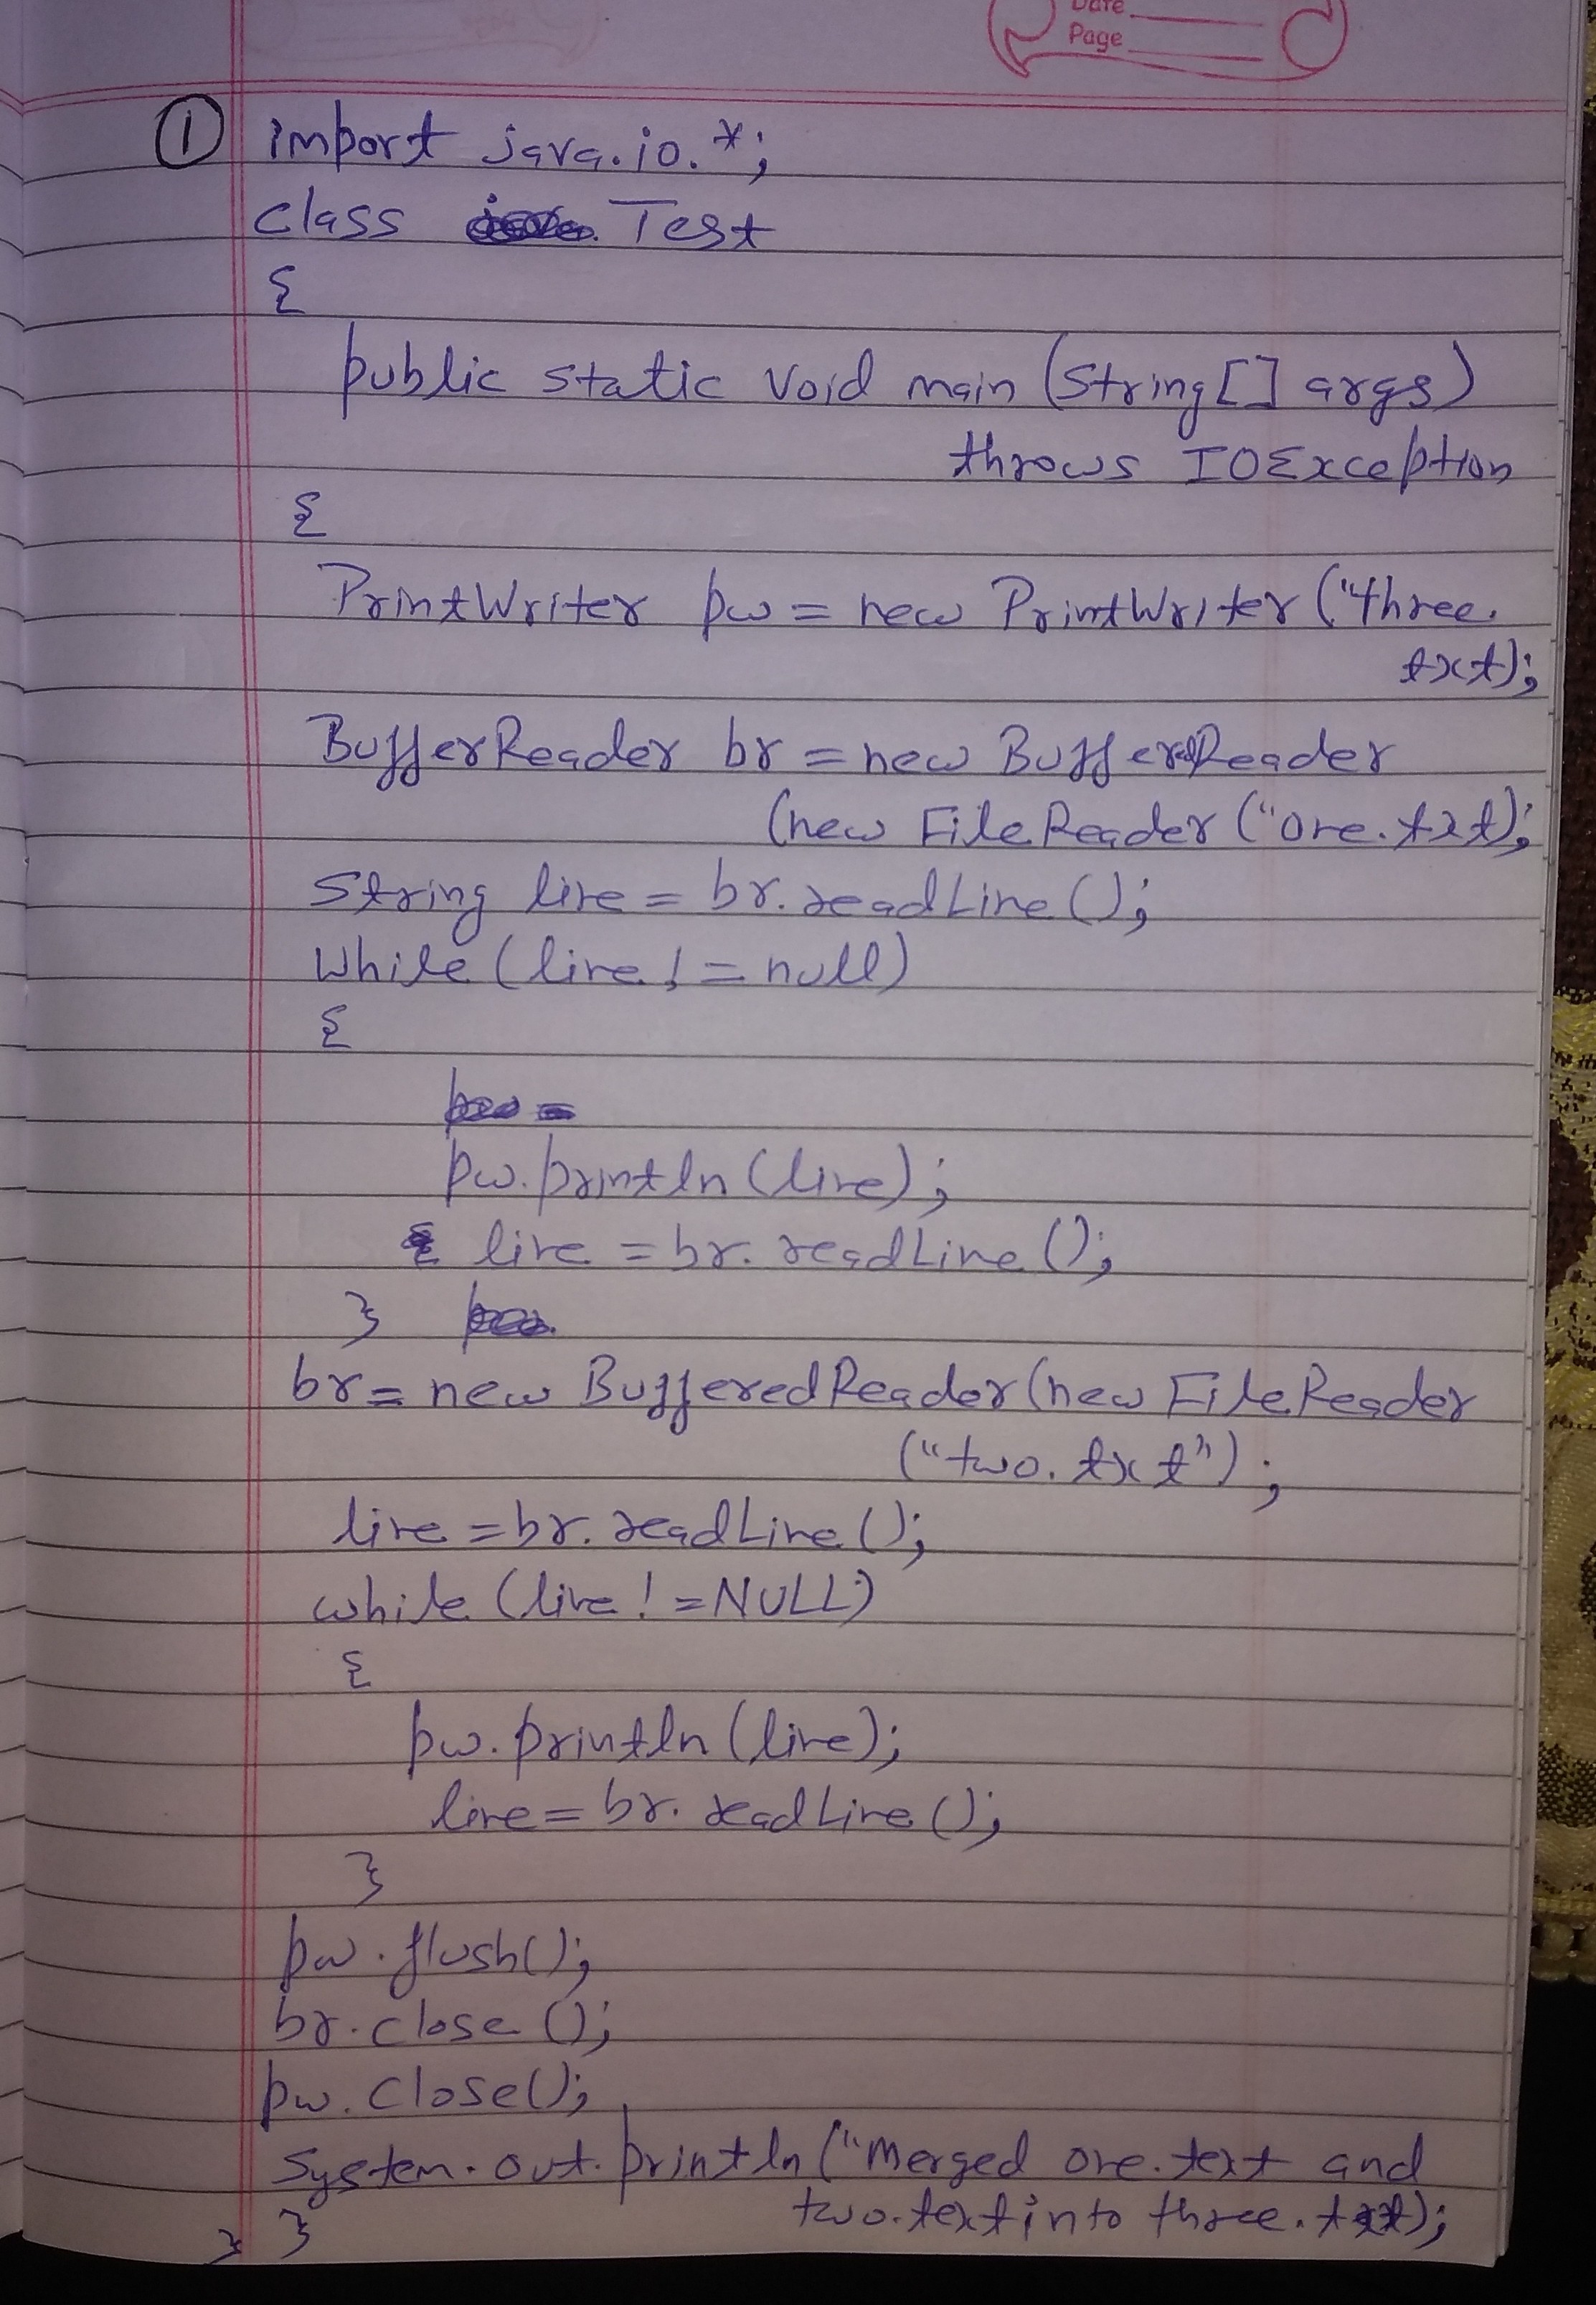 Date
Page
① import java.io.*;
class Test
{
public static void main (String[] args)
throws IOException
{
PrintWriter pw = new PrintWriter ("three.
txt);
BufferReader br = new BufferedReader
(new FileReader ("one.txt);
String line = br.readLine();
while (line != null)
{
pw.println(line);
line = br.readLine();
}
br = new BufferedReader(new FileReader
("two.txt");
line = br.readLine();
while (line != NULL)
{
pw.println(line);
line = br.readLine();
}
pw.flush();
br.close();
pw.close();
System.out.println("Merged one.text and
two.text into three.txt);
} }